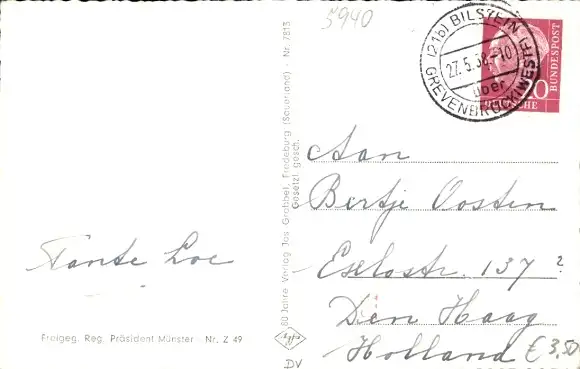 5940
(21b) BILSTEIN
27.5.58.-10
über
GREVENBRÜCK (WESTF)
DEUTSCHE
BUNDESPOST
20
Aan
Bertje Oosten
137 ?
Den Haag
Holland
€ 3,50
Tante Loe
Freigeg. Reg. Präsident Münster · Nr. Z 49
60 Jahre Verlag Jos. Grobbel, Fredeburg (Sauerland) - Nr. 7813
Gesetzl. gesch.
Agfa
DV